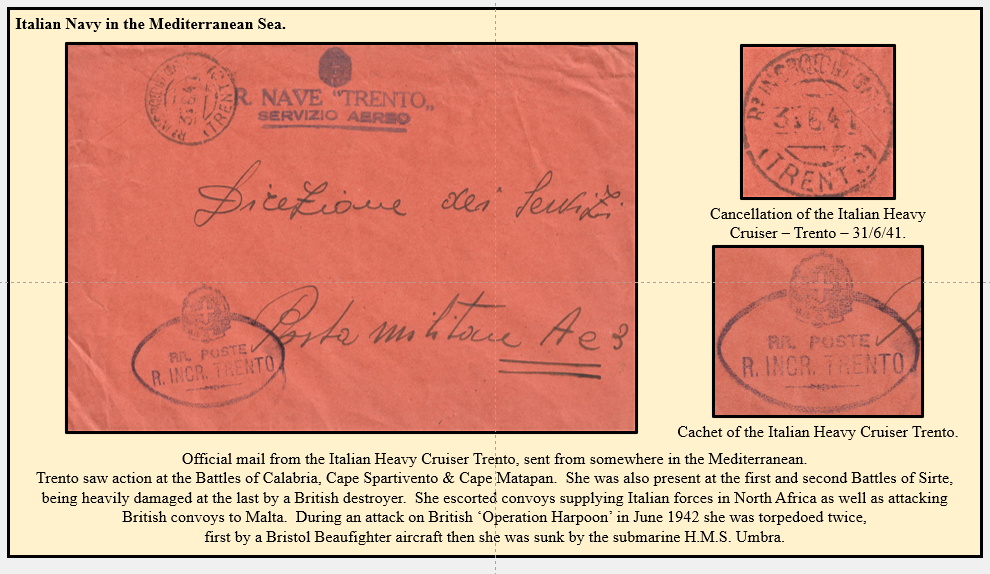 Italian Navy in the Mediterranean Sea.
R. NAVE "TRENTO„
SERVIZIO AEREO
(TRENTO)
Direzione dei Servizi
Posta militare Ae 3
RR. POSTE
R. INCR. TRENTO
31.6.41
(TRENTO)
Cancellation of the Italian Heavy
Cruiser – Trento – 31/6/41.
RR. POSTE
R. INCR. TRENTO
Cachet of the Italian Heavy Cruiser Trento.
Official mail from the Italian Heavy Cruiser Trento, sent from somewhere in the Mediterranean.
Trento saw action at the Battles of Calabria, Cape Spartivento & Cape Matapan. She was also present at the first and second Battles of Sirte,
being heavily damaged at the last by a British destroyer. She escorted convoys supplying Italian forces in North Africa as well as attacking
British convoys to Malta. During an attack on British ‘Operation Harpoon’ in June 1942 she was torpedoed twice,
first by a Bristol Beaufighter aircraft then she was sunk by the submarine H.M.S. Umbra.